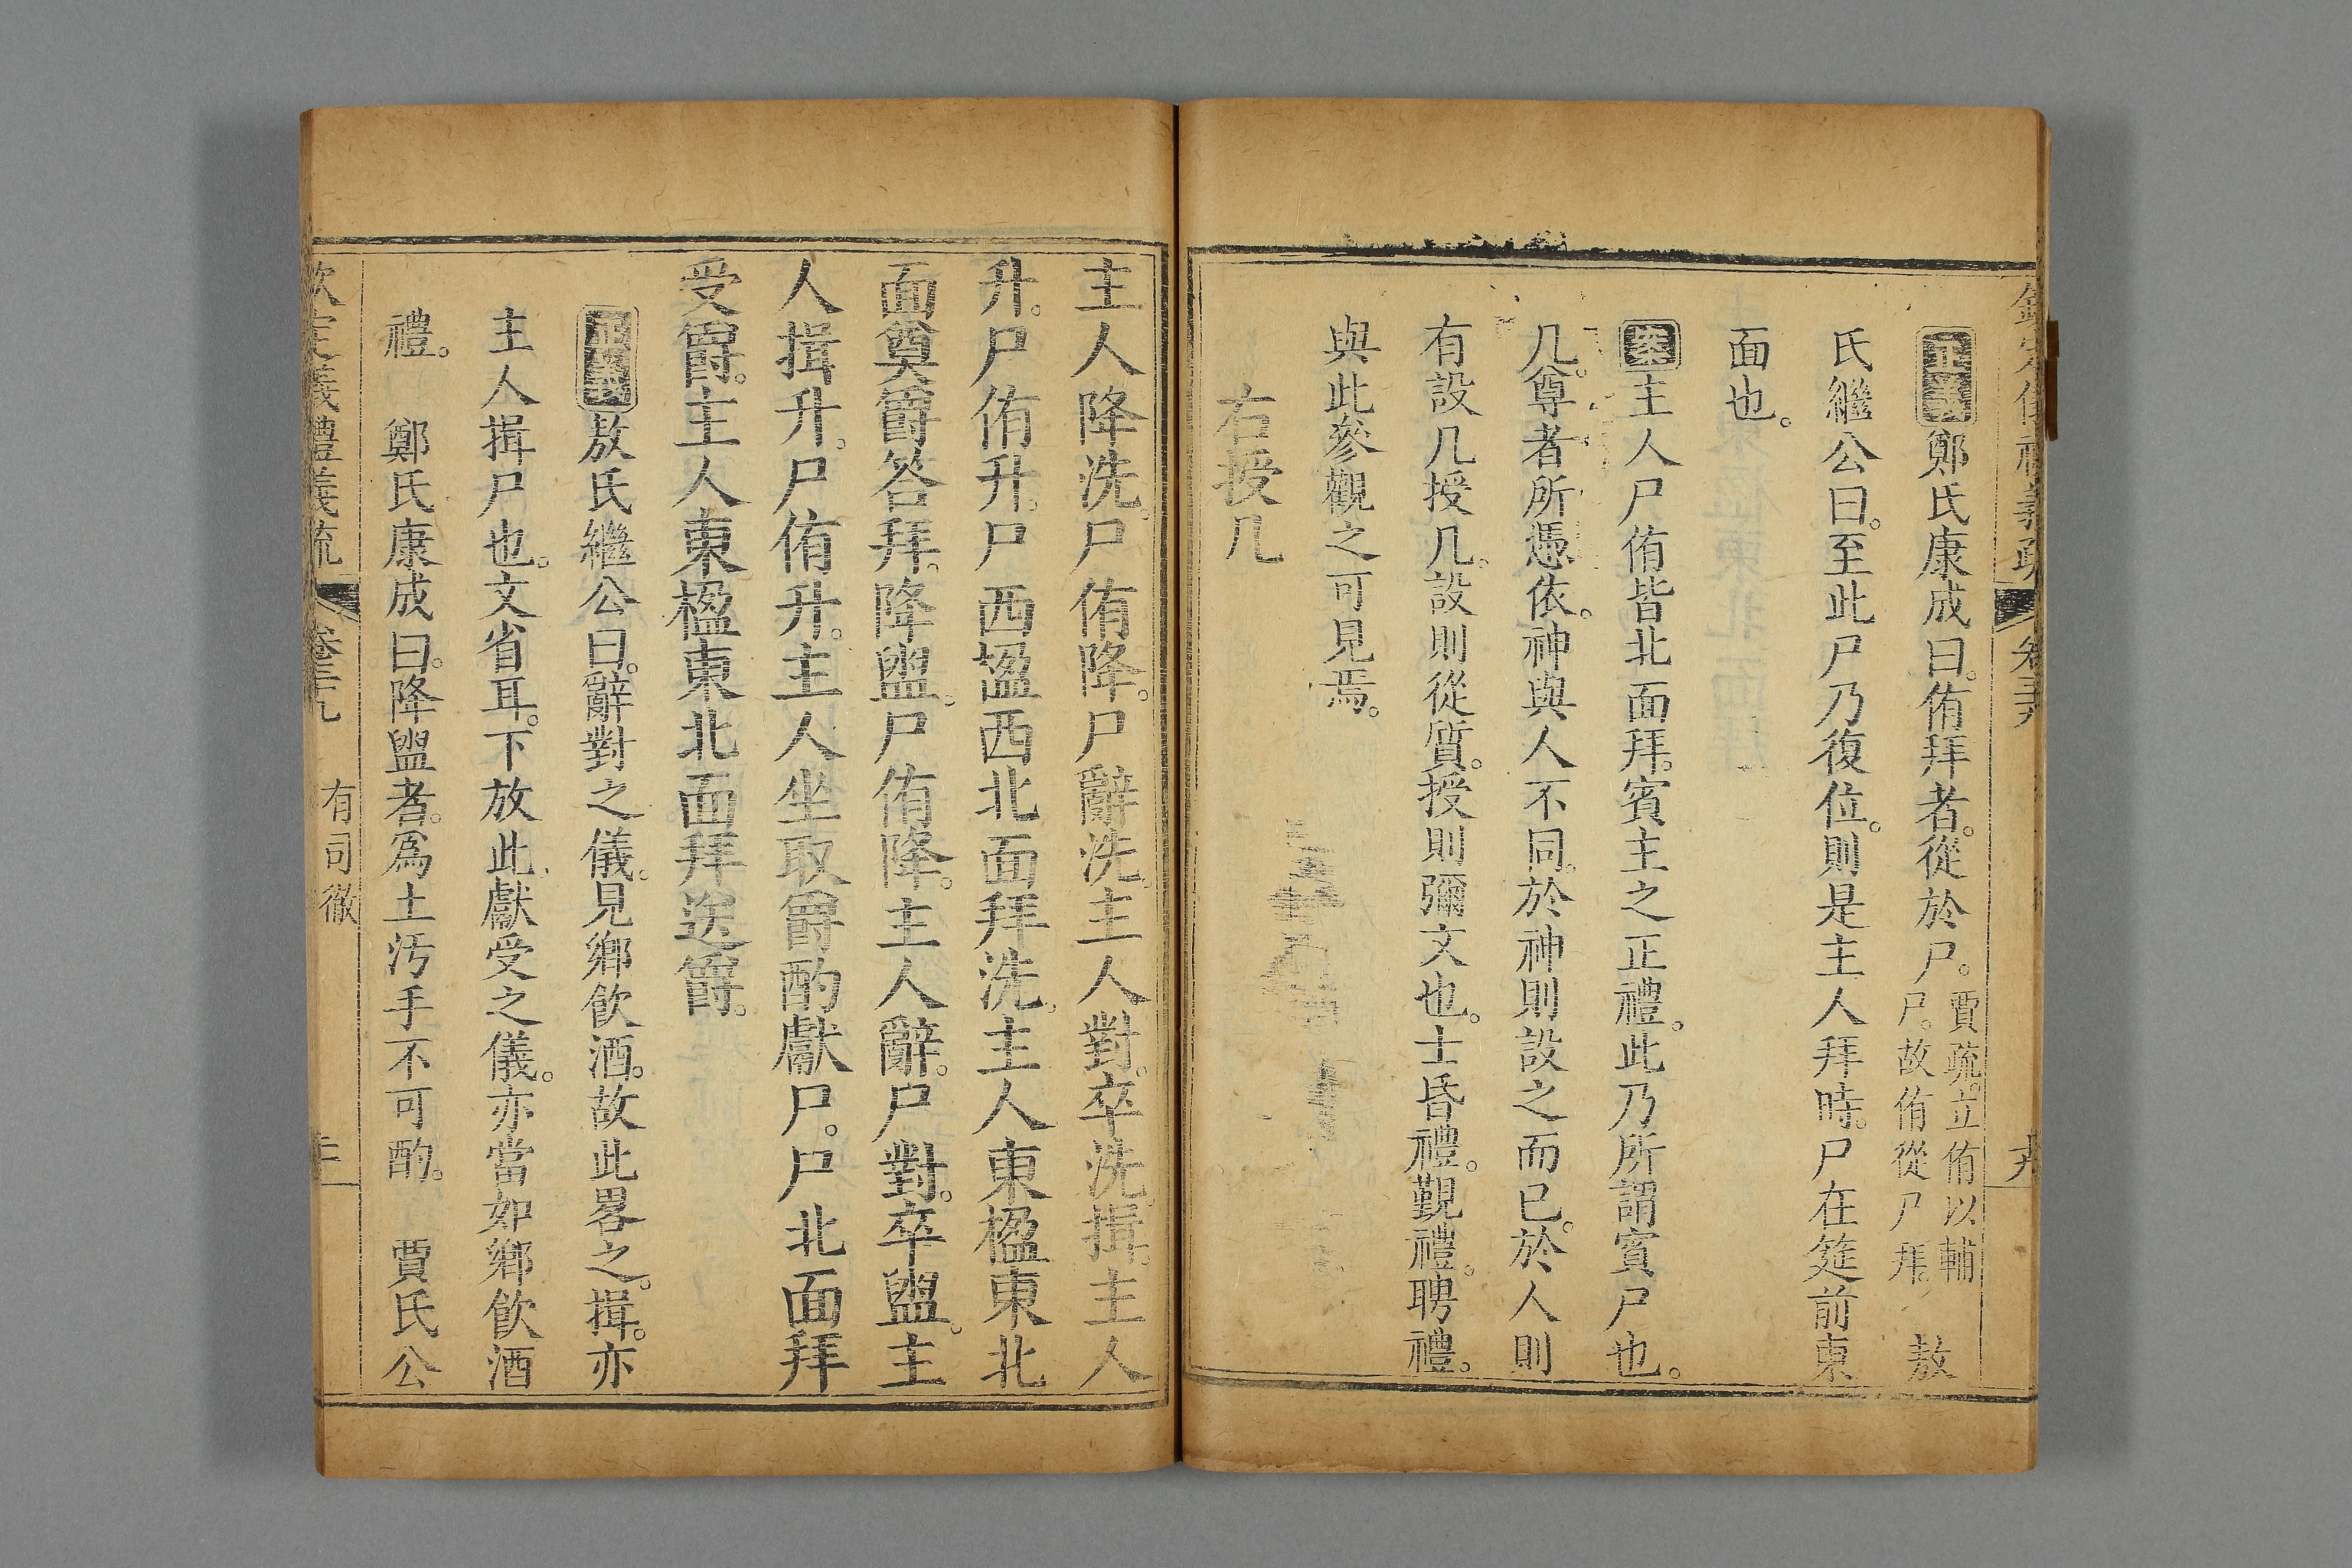 欽定儀禮義疏 卷三十九
正義鄭氏康成曰。侑拜者。從於尸。賈疏。立侑以輔尸。故侑從尸拜。 敖
氏繼公曰。至此尸乃復位。則是主人拜時。尸在筵前東
面也。
案主人尸侑皆北面拜。賓主之正禮。此乃所謂賓尸也。
几。尊者所憑依。神與人不同。於神則設之而已。於人則
有設几授几。設則從質。授則彌文也。士昏禮。覲禮。聘禮。
與此參觀之可見焉。
右授几
主人降洗。尸侑降。尸辭洗。主人對。卒洗。揖。主人
升。尸侑升。尸西楹西北面拜洗。主人東楹東北
面奠爵答拜。降盥。尸侑降。主人辭。尸對。卒盥。主
人揖升。尸侑升。主人坐取爵酌獻尸。尸北面拜
受爵。主人東楹東北面拜送爵。
正義敖氏繼公曰。辭對之儀。見鄉飲酒。故此畧之。揖。亦
主人揖尸也。文省耳。下放此。獻受之儀。亦當如鄉飲酒
禮。 鄭氏康成曰。降盥者。爲土汚手不可酌。 賈氏公
欽定儀禮義疏 卷三十九 有司徹